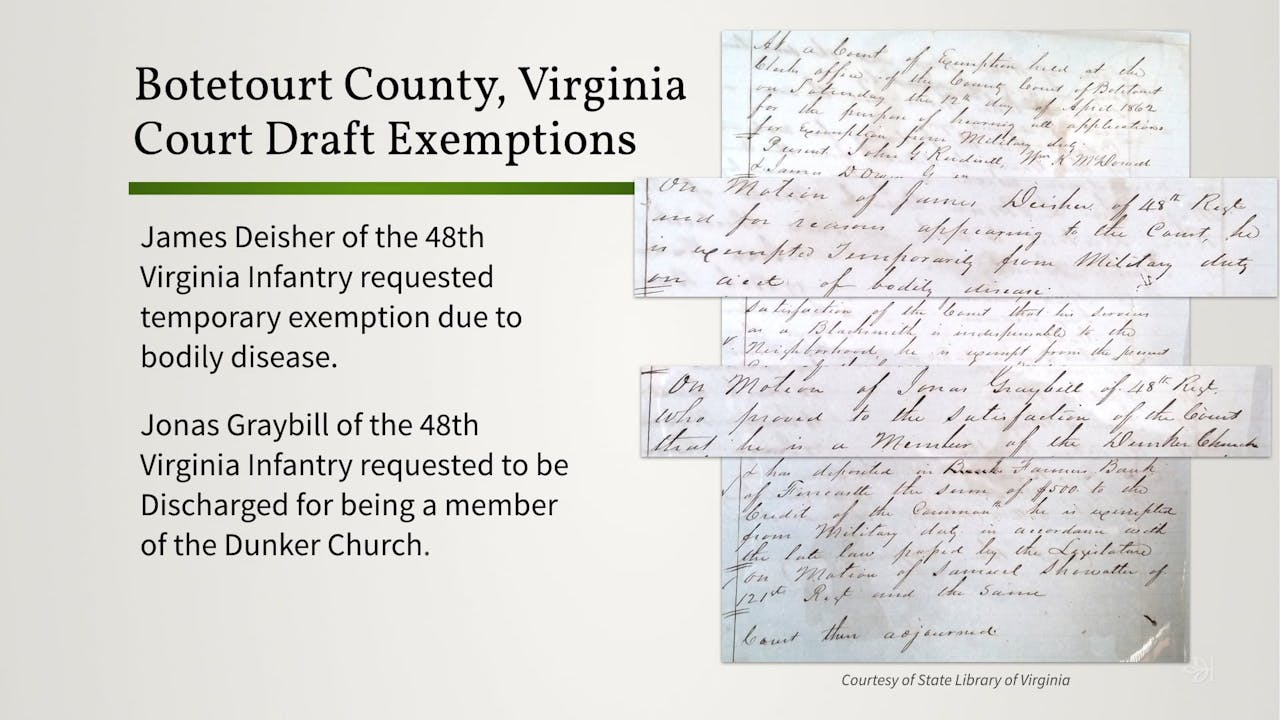 Botetourt County, Virginia
Court Draft Exemptions
James Deisher of the 48th
Virginia Infantry requested
temporary exemption due to
bodily disease.
Jonas Graybill of the 48th
Virginia Infantry requested to be
Discharged for being a member
of the Dunker Church.
At a Court of Exemption held at the
Clerks office of the County Court of Botetourt
on Saturday the 12th day of April 1862
for the purpose of hearing all applications
for Exemption from Military duty
Present John G Wm R McDowell
& James D
On Motion of James Deisher of 48th Regt
and for reasons appearing to the Court, he
is exempted Temporarily from Military duty
on acct of bodily disease.
satisfaction of the Court that his services
as a Blacksmith is indispensable to the
Neighborhood he is exempt from the present
On Motion of Jonas Graybill of 48th Regt.
who proved to the satisfaction of the Court
that he is a Member of the Dunker Church
& has deposited in Farmers Bank
of Fincastle the sum of $500 to the
Credit of the Commonth he is exempted
from Military duty in accordance with
the late law passed by the Legislature
on Motion of Samuel Showalter of
121st Regt and the Same
Court then adjourned
Courtesy of State Library of Virginia